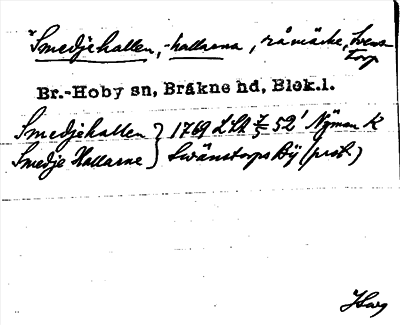 Smedjehallen, -hallarna, råmärke, Svens-
torp
Br.-Hoby sn, Bräkne hd, Blek.l.
Smedjehallen } 1769 LSA 52' Nyman K
Smedje Hallarne } Swänstorps By (prot.)